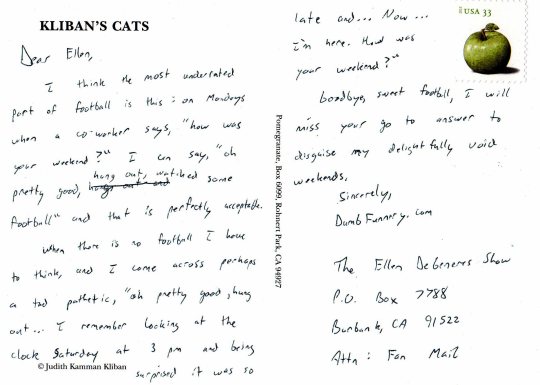 KLIBAN'S CATS
Dear Ellen,
I think the most underrated
part of football is this: on Mondays
when a co-worker says, "how was
your weekend?" I can say, "oh
hang out, watched
pretty good, hangs out and some
football" and that is perfectly acceptable.
When there is no football I have
to think, and I come across perhaps
a tad pathetic, "oh pretty good, hung
out... I remember looking at the
clock Saturday at 3 pm and being
surprised it was so
© Judith Kamman Kliban
Pomegranate, Box 6099, Rohnert Park, CA 94927
USA 33
late and... Now...
I'm here. How was
your weekend?"
Goodbye, sweet football, I will
miss your go to answer to
disguise my delightfully void
weekends.
Sincerely,
DumbFunnery.com
The Ellen DeGeneres Show
P.O. Box 7788
Burbank, CA 91522
Attn: Fan Mail